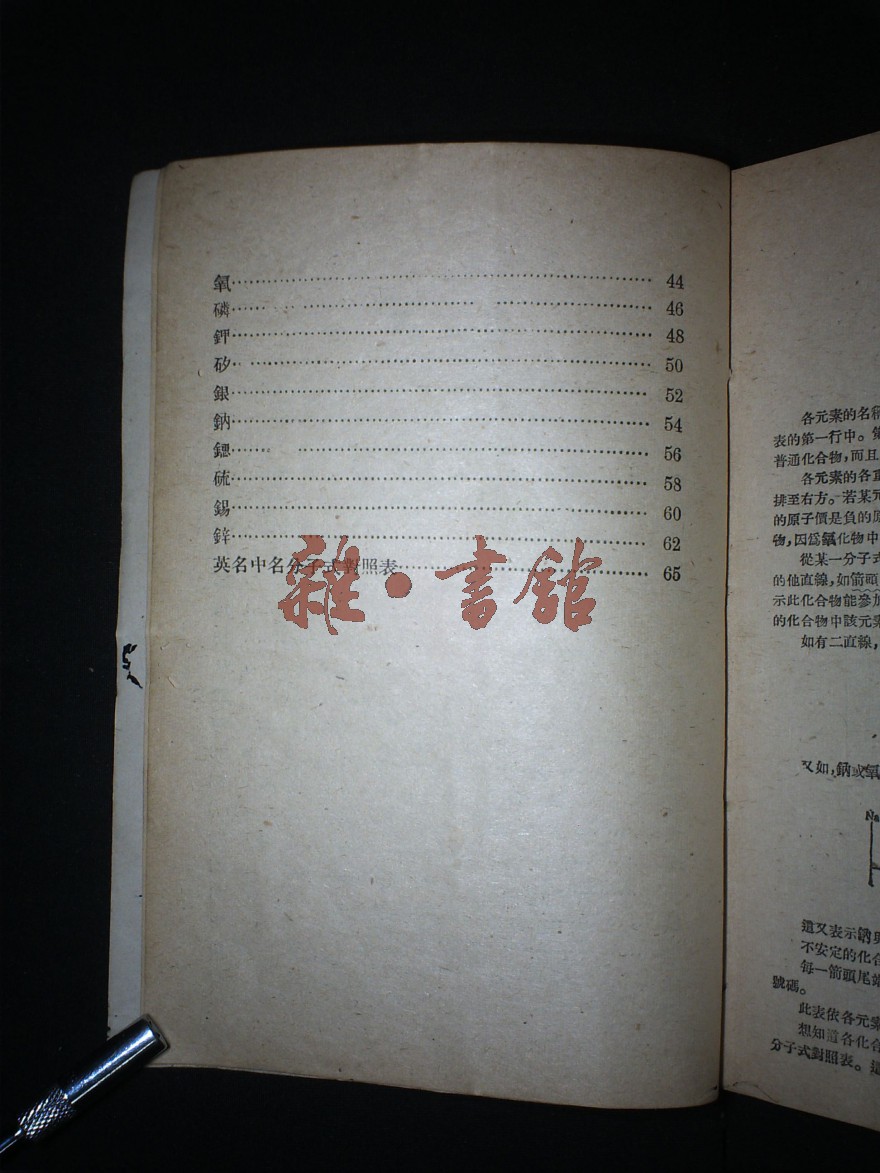 氧 44
磷 46
鉀 48
矽 50
銀 52
鈉 54
鍶 56
硫 58
錫 60
鋅 62
英名中名分子式對照表 65
雜·書館
各元素的名稱
表的第一行中。
普通化合物,而且
各元素的各直
排至右方。若某元
的原子價是負的原
物,因爲氫化物中
從某一分子式
的他直線,如箭頭
示此化合物能參加
的化合物中該元素
如有二直線,
又如,鈉或氧
Na
這又表示鈉與
不安定的化合
每一箭頭尾端
號碼。
此表依各元素
想知道各化合
分子式對照表。這